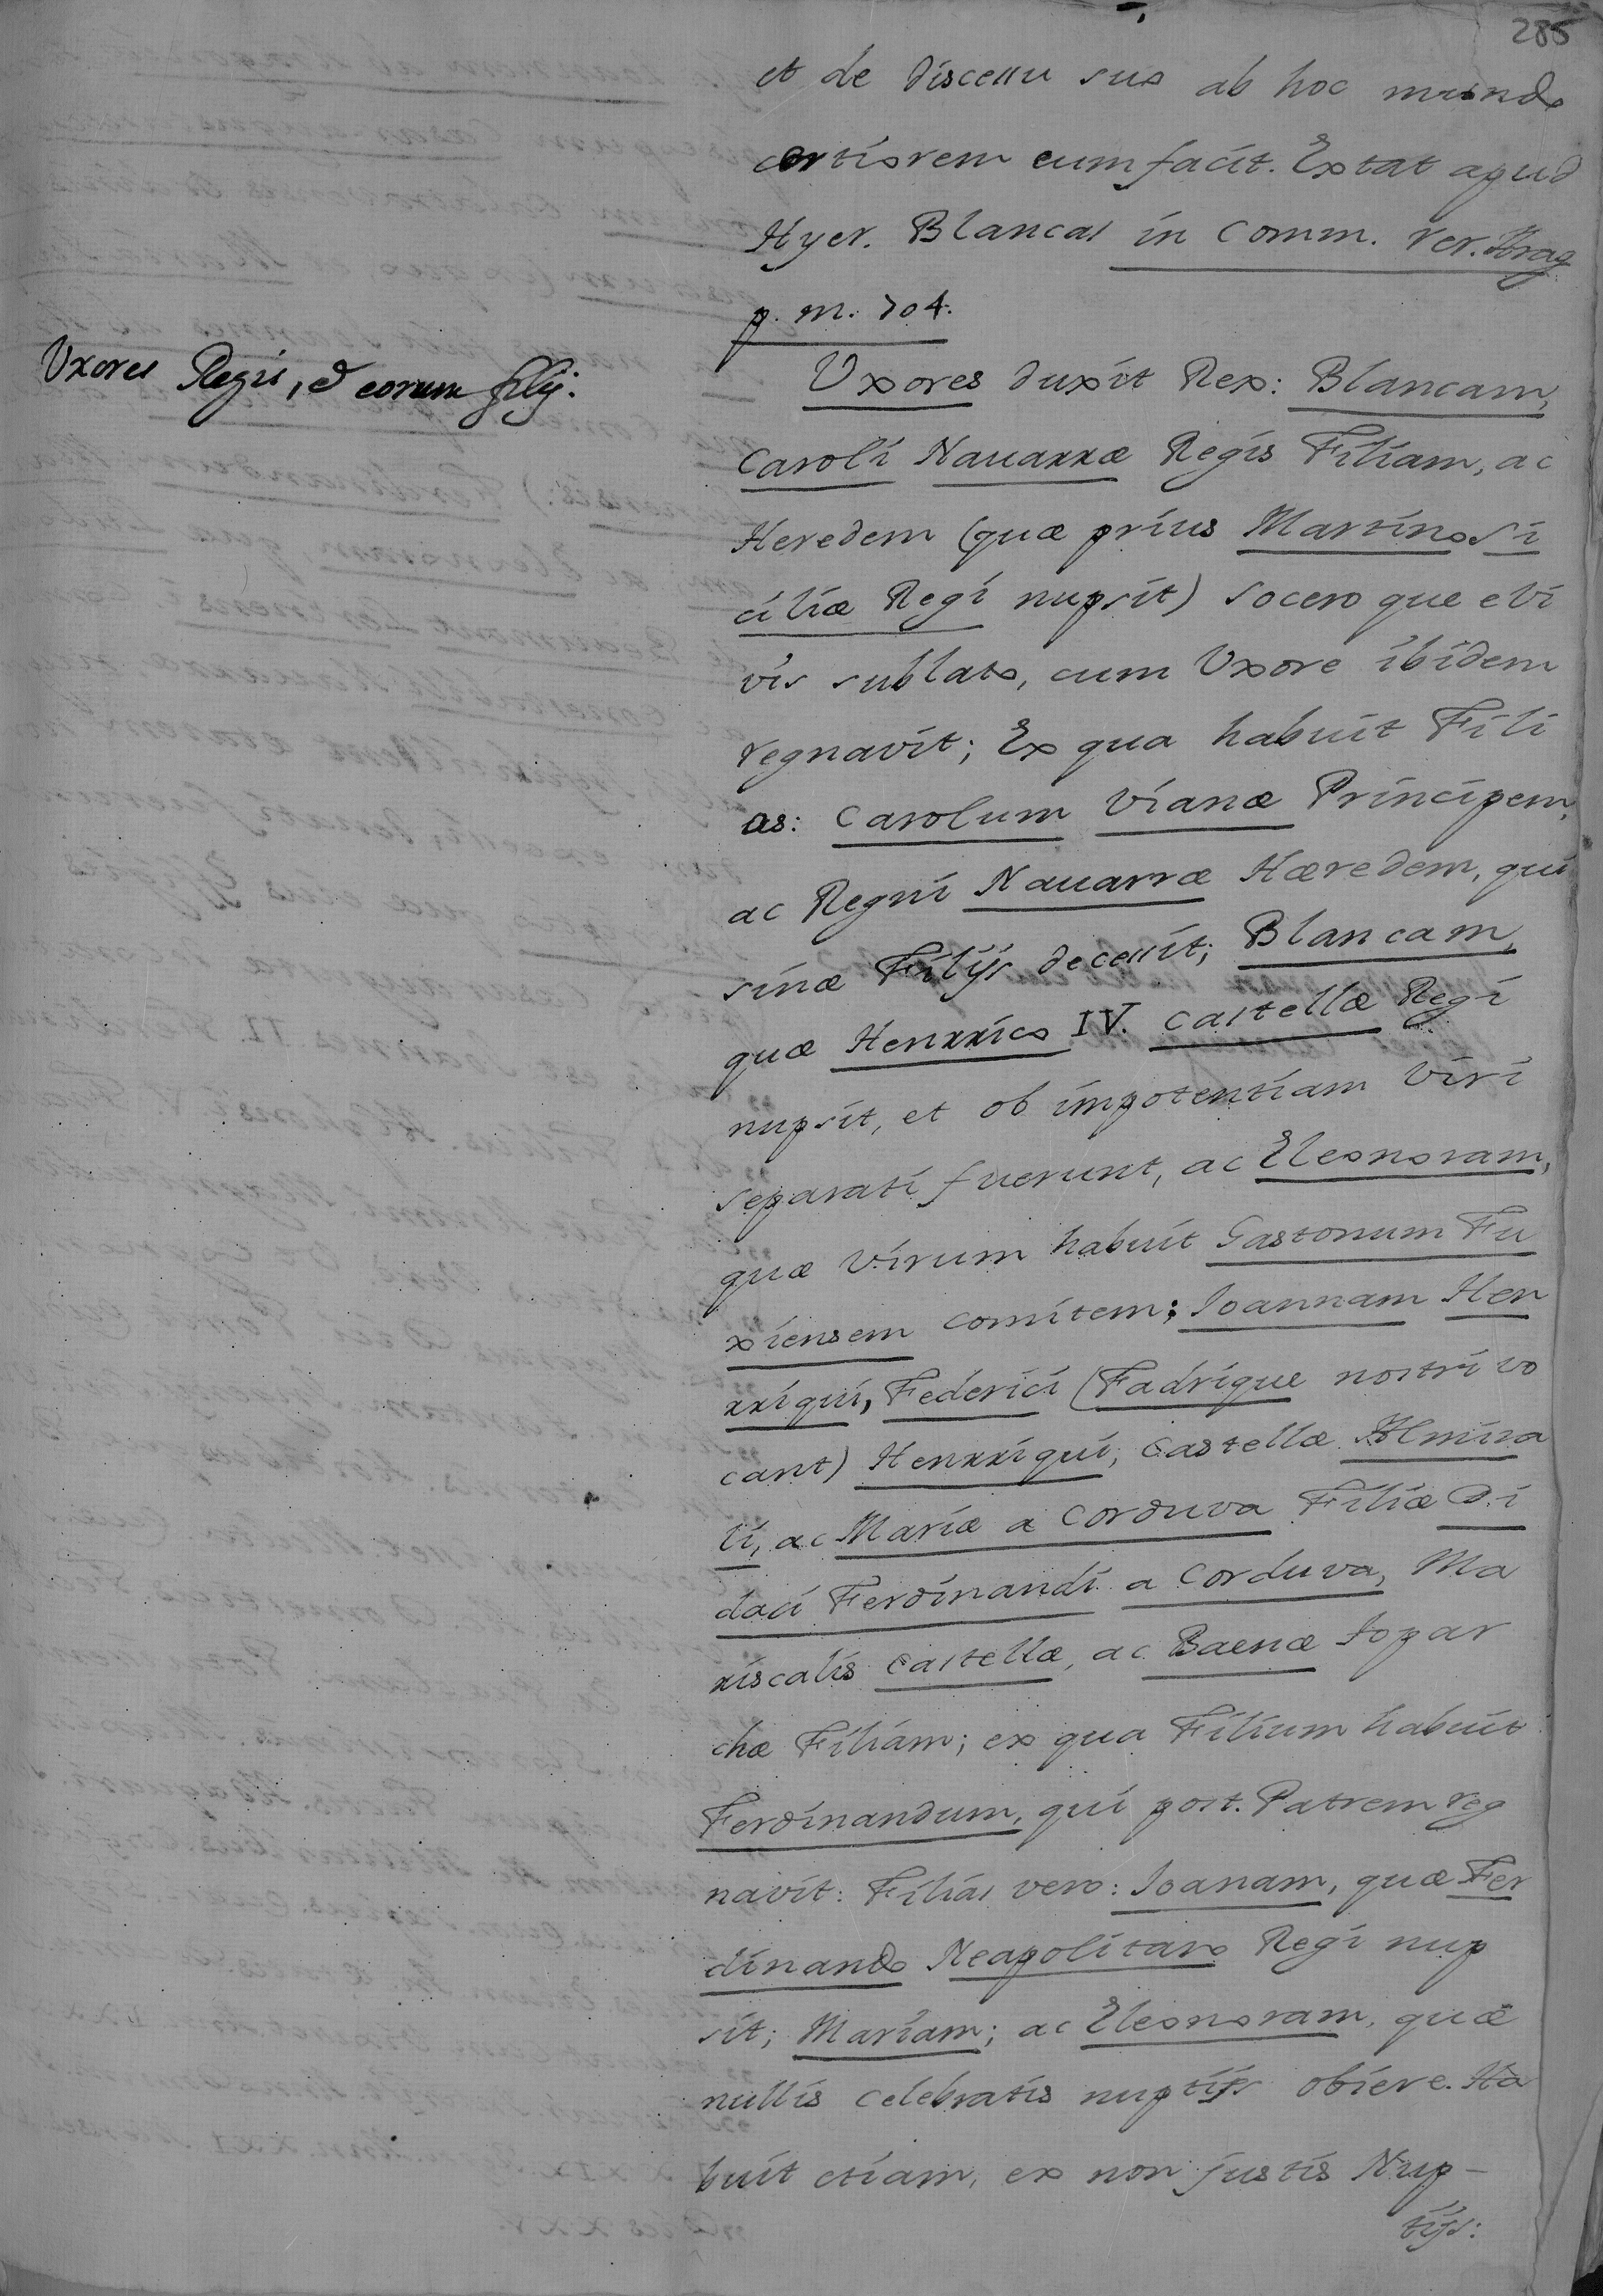 285
et de discessu suo ab hoc mundo
certiorem eum facit. Extat apud
Hyer. Blancas in Comm. rer. Arag
p. m. 704.
Uxores Regis, & eorum filij:
Uxores duxit Rex: Blancam,
Caroli Nauarræ Regis Filiam, ac
Heredem (quæ prius Martino Si
ciliæ Regi nupsit) socero que e vi
vis sublato, cum Uxore ibidem
regnavit; Ex qua habuit Fili
os: Carolum Vianæ Principem,
ac Regni Nauarræ Hæredem, qui
sinæ Filijs decessit; Blancam,
quæ Henrrico IV. Castellæ Regi
nupsit, et ob impotentiam Viri
separati fuerunt, ac Eleonoram,
quæ Virum habuit Gastonum Fu
xiensem Comitem; Ioannam Hen
rriqui, Federici (Fadrique nostri vo
cant) Henrriqui, Castellæ Almira
li, ac Mariæ a Corduva Filiæ Di
daci Ferdinandi a Corduva, Ma
riscalis Castellæ, ac Baenæ Topar
chæ Filiam; ex qua Filium habuit
Ferdinandum, qui post Patrem reg
navit: Filias vero: Ioanam, quæ Fer
dinando Neapolitano Regi nup
sit; Mariam; ac Eleonoram, quæ
nullis celebratis nuptijs obiere. Ha
buit etiam, ex non justis Nup-
tijs: